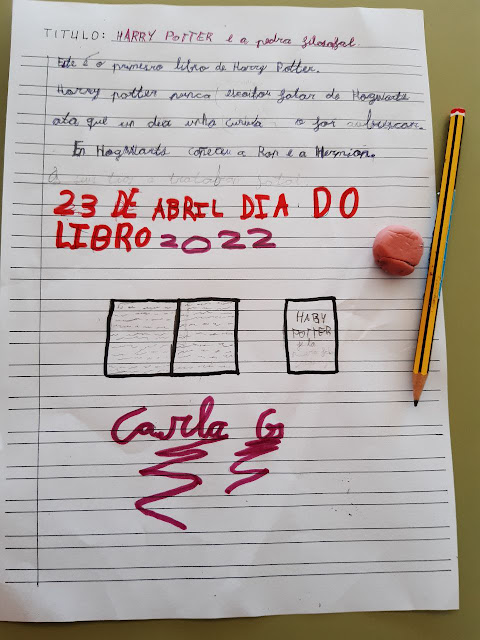 TITULO: HARRY POTTER e a pedra filosofal
Este é o primeiro libro de Harry Potter.
Harry potter nunca escoitou falar de Hogwarts
ata que un dia unha curuxa o foi buscar.
En Hogwarts coñeceu a Ron e a Hermion.
23 DE ABRIL DIA DO
LIBRO 2022
HABY
POTTER
y la
Carla G